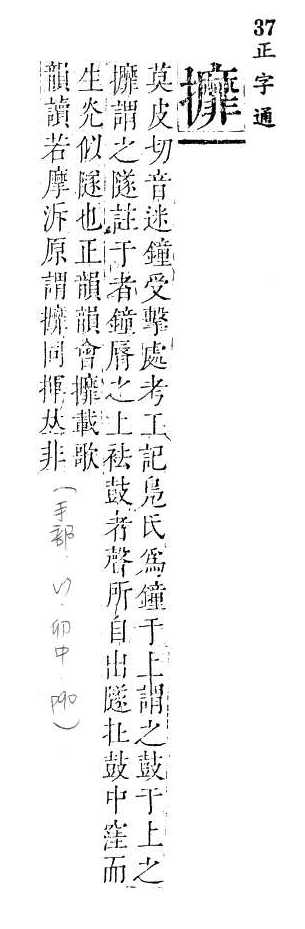 37
正字通
攠
莫皮切音迷鐘受擊處考工記鳧氏為鐘于上謂之鼓于上之
攠謂之隧註于者鐘脣之上袪鼓者聲所自出隧扗鼓中窪而
生炗似隧也正韻韻會攠載歌
韻讀若摩泝原謂攠同揮𠀤非
(手部.17.卯中.p90)